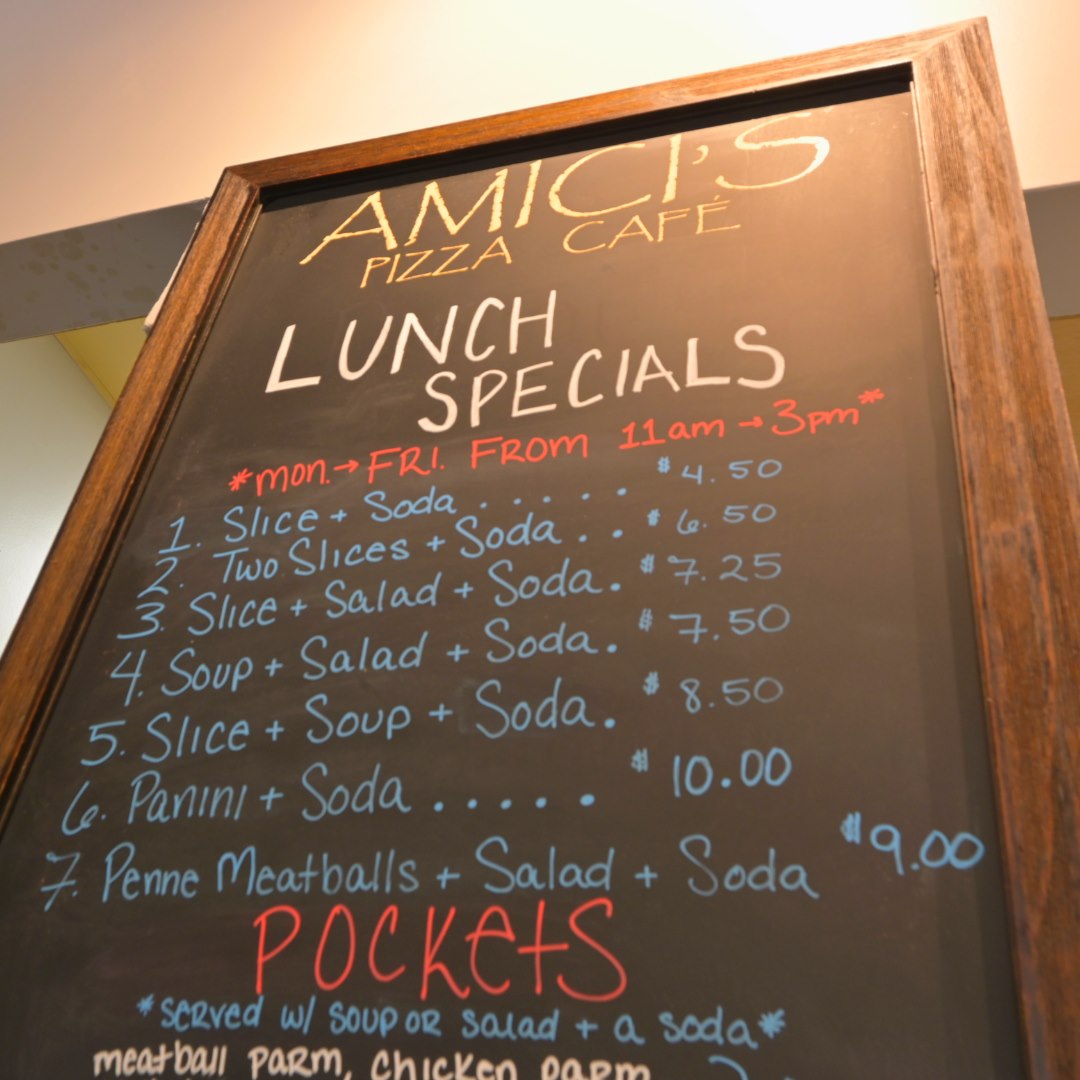 AMICI'S
PIZZA CAFÉ
LUNCH
SPECIALS
*mon.→FRI. FROM 11am→3pm*
1. Slice + Soda . . . . . . $4.50
2. Two Slices + Soda . . $6.50
3. Slice + Salad + Soda. $7.25
4. Soup + Salad + Soda. $7.50
5. Slice + Soup + Soda. $8.50
6. Panini + Soda . . . . . $10.00
7. Penne Meatballs + Salad + Soda $9.00
POCKETS
*SERVED W/ SOUP OR Salad + a soda*
meatball PARM, CHICKEN PARM